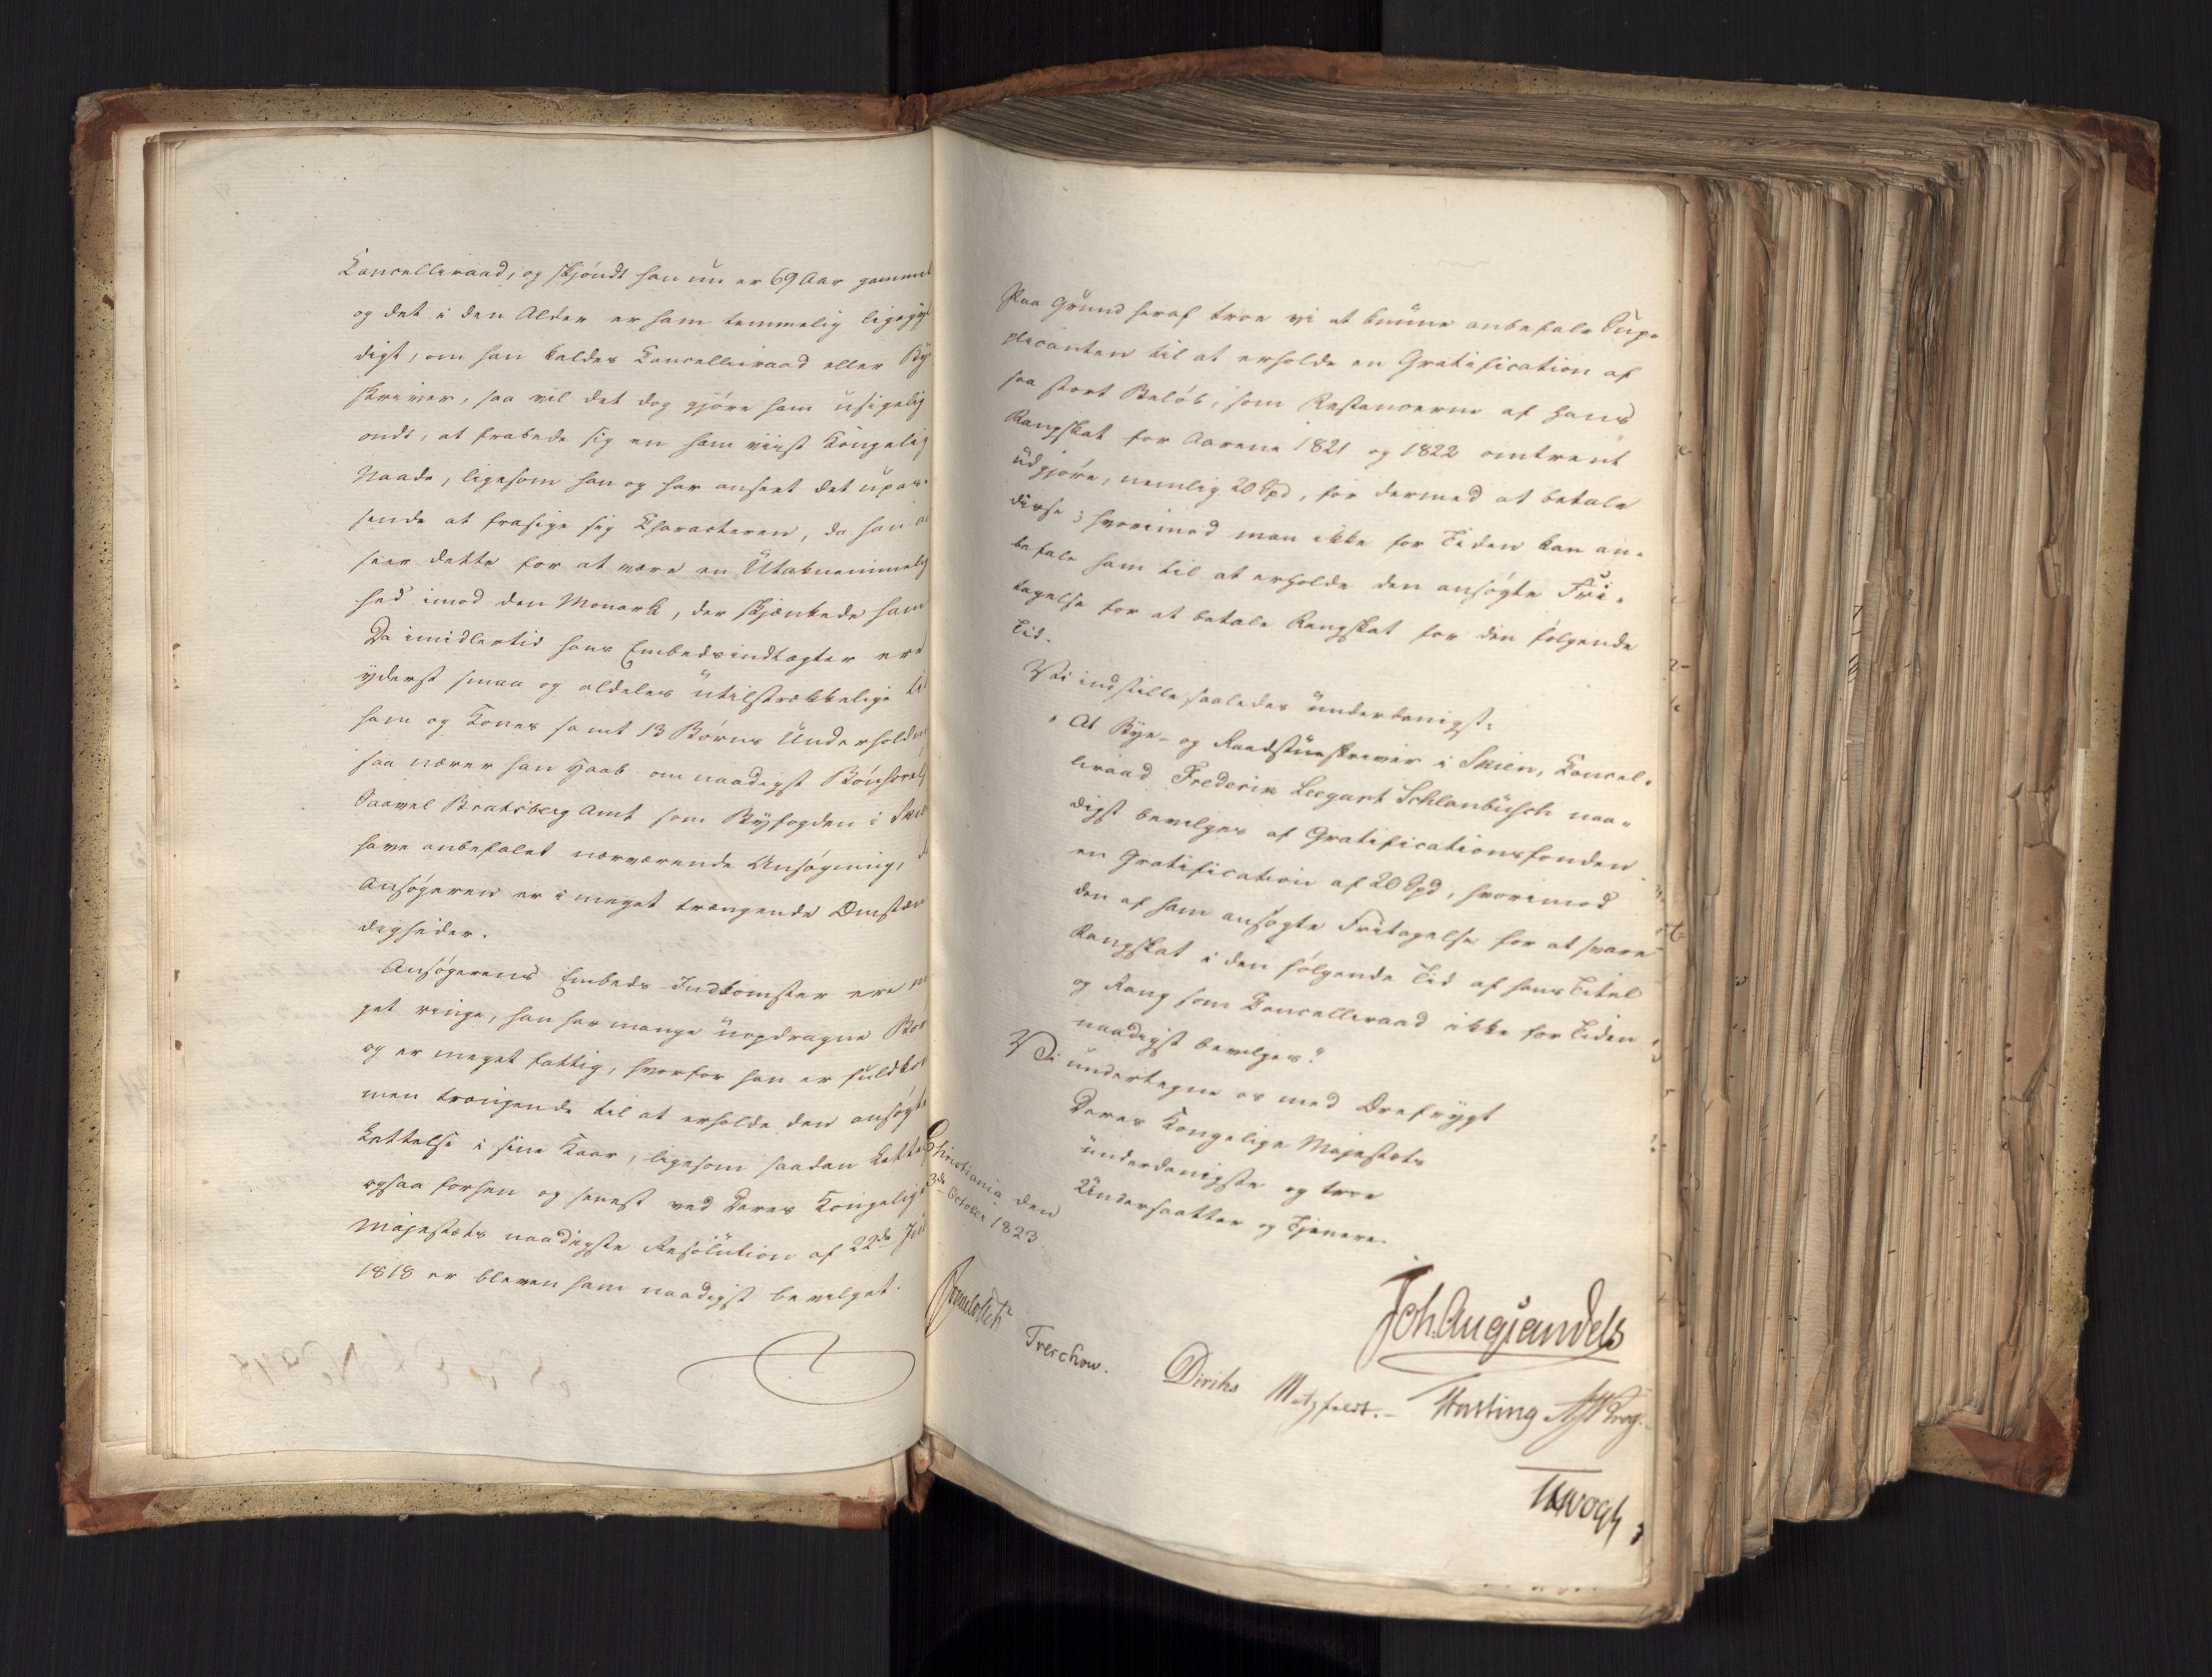 Cancelliraad; og skjöndt han nu er 69 Aar gammel
og det i den Alder er ham temmelig ligegyl
digt, om han kaldes Cancelliraad eller By
skriver, saa vil det dog gjöre ham usigelig
ondt, at frabede sig en ham viist Kongelig
Naade, ligesom han og har anseet det upas
sende at frasige sig Characteren, da han
seer dette for at være en Utaknemmelig
hed imod den Monark, der skjænkede ham
Da imidlertid hans Embedsindtægter ere
yderst smaa og aldeles utilstrækkelige til
ham og Kones samt 13 Börns Underholdn
saa nærer han Haab om naadigst Bönhörel
Saavel Bratsberg Amt som Byfogden i Skie
have anbefalet nærværende Ansögning,
Ansögeren er i meget trængende Omstæn
digheder.
Ansögerens Embeds-Indkomster ere m
get ringe, han har mange uopdragne Bör
og er meget fattig, hvorfor han er fuldkom
men trængende til at erholde den ansögte
Lettelse i sine Kaar, ligesom saadan Lettel
ogsaa forhen og senest ved Deres Kongelige
Majestæts naadigste Resolution af 22de Jul
1818 er bleven ham naadigst bevilget.
Paa Grund heraf troe vi at kunne anbefale Sup-
plicanten til at erholde en Gratification af
saa stort Belöb, som Restancerne af hans
Rangskat for Aarene 1821 og 1822 omtrent
udgjöre, nemlig 20 Spd, for dermed at betale
disse; hvorimod man ikke for Tiden kan an-
befale ham til at erholde den ansögte Fri-
tagelse for at betale Rangskat for den fölgende
Tid.
Vi indstille saaledes underdanigst:
"At Bye- og Raadstueskriver i Skien, Cancel-
liraad Frederik Leegart Schlanbusch naa-
digst bevilges af Gratificationsfonden
en Gratification af 20 Spd, hvorimod
den af ham ansögte Fritagelse for at svare
Rangskat i den fölgende Tid af hans Titel
og Rang som Cancelliraad ikke for Tiden
naadigst bevilges."
Vi undertegne os med Ærefrygt
Deres Kongelige Majestæts
underdanigste og troe
Undersaatter og Tjenere.
Christiania den
3de October 1823
Joh. Aug: Sandels
Sommerfeldt
Treschow.
Diriks
Motzfeldt.
Fasting
Krog.
Vogt